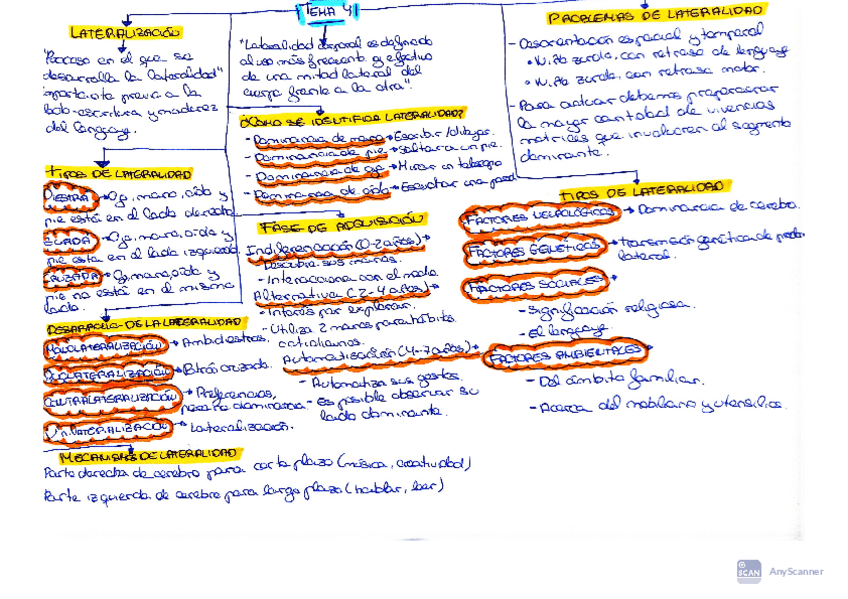 TEMA 4
LATERALIZACIÓN
"Proceso en el que se
desarrolla la lateralidad"
importante previa a la
lecto-escritura y madurez
del lenguaje.
"Lateralidad corporal es definida
al uso más frecuente y efectivo
de una mitad lateral del
cuerpo frente a la otra".
PROBLEMAS DE LATERALIDAD
- Desorientación espacial y temporal
• N. No zurdo, con retraso de lenguaje
• N. No zurdo, con retraso motor.
- Para actuar debemos
la mayor cantidad de vivencias
motrices que involucren al segmento
dominante.
¿CÓMO SE IDENTIFICA LATERALIDAD?
- Dominancia de mano → Escribir/dibujar.
- Dominancia de pie → Saltar a un pie.
- Dominancia de ojo → Mirar un
- Dominancia de oído → Escuchar una pared
TIPOS DE LATERALIDAD
DIESTRA → Ojo, mano, oído y
pie está en el lado derecho
ZURDA → Ojo, mano, oído y
pie está en el lado izquierdo
CRUZADA → Ojo, mano, oído y
pie no está en el mismo
lado.
FASE DE ADQUISICIÓN
Indiferenciación (0-2 años) →
- Descubre sus manos.
- Interacciona con el medio.
Alternativa (2-4 años) →
- Interés por explorar.
- Utiliza 2 manos para hábitos
cotidianos.
Automatización (4-7 años) →
- Automatiza sus gestos.
- Es posible observar su
lado dominante.
TIPOS DE LATERALIDAD
FACTORES NEUROLÓGICOS → Dominancia de cerebro.
FACTORES GENÉTICOS → transmisión genética de
lateral.
FACTORES SOCIALES →
- Significación religiosa.
- El lenguaje.
FACTORES AMBIENTALES →
- Del ámbito familiar.
- Acerca del mobiliario y utensilios.
DESARROLLO DE LA LATERALIDAD
→ Ambidiestros.
→
CONTRALATERALIZACIÓN → Preferencias,
pero no dominancia.
UNILATERALIZACIÓN → Lateralización.
MECANISMO DE LATERALIDAD
Parte derecha de cerebro para corto plazo (música, creatividad)
Parte izquierda de cerebro para largo plazo (hablar, leer)
SCAN
AnyScanner